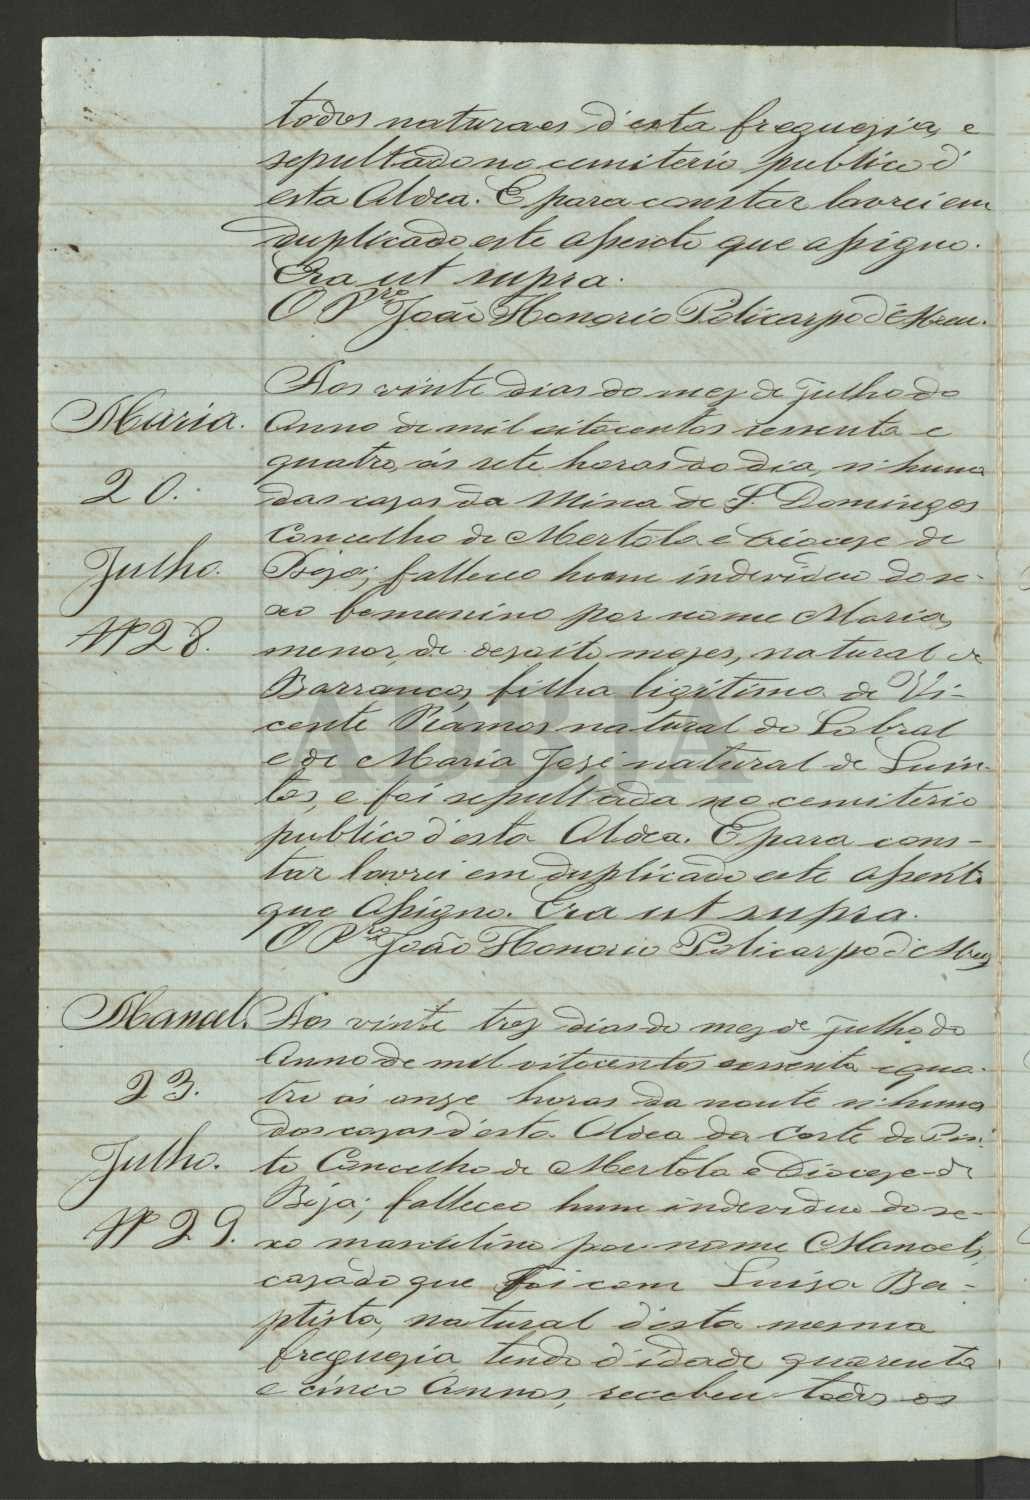 todos naturaes d'esta freguezia, e
sepultado no cemiterio publico d'
esta Aldea. E para constar lavrei em
duplicado este assento que assigno.
Era ut supra.
O Prº João Honorio Policarpo d'Abreu.
Maria.
20.
Julho.
Nº 28.
Aos vinte dias do mez de julho do
Anno de mil oitocentos sessenta e
quatro, ás sete horas do dia, n'huma
das cazas da Mina de S. Domingos
Concelho de Mertola e Dioceze de
Beja; falleceo hum individuo do se-
xo femenino por nome Maria,
menor, de dezoito mezes, natural de
Barrancos, filha ligitima de Vi-
cente Ramos natural do Sobral
e de Maria José natural de Quin-
tos, e foi sepultada no cemiterio
publico d'esta Aldea. E para cons-
tar lavrei em duplicado este assento
que Assigno. Era ut supra.
O Prº João Honorio Policarpo d'Abreu
Manoel.
23.
Julho.
Nº 29.
Aos vinte trez dias do mez de julho do
Anno de mil oitocentos sessenta e qua-
tro ás onze horas da noute n'huma
das cazas d'esta Aldea da Corte do Pin-
to Concelho de Mertola e Dioceze de
Beja; falleceo hum individuo do se-
xo masculino por nome Manoel,
cazado que foi com Luiza Ba-
ptista, natural d'esta mesma
freguezia tendo d'idade quarenta
e cinco Annos, recebeu todos os
ADBJA